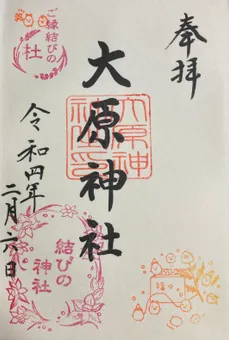 奉拝
ご縁結びの
社
大原神社
大原神
社之印
令和四年
二月六日
結びの
神社
福